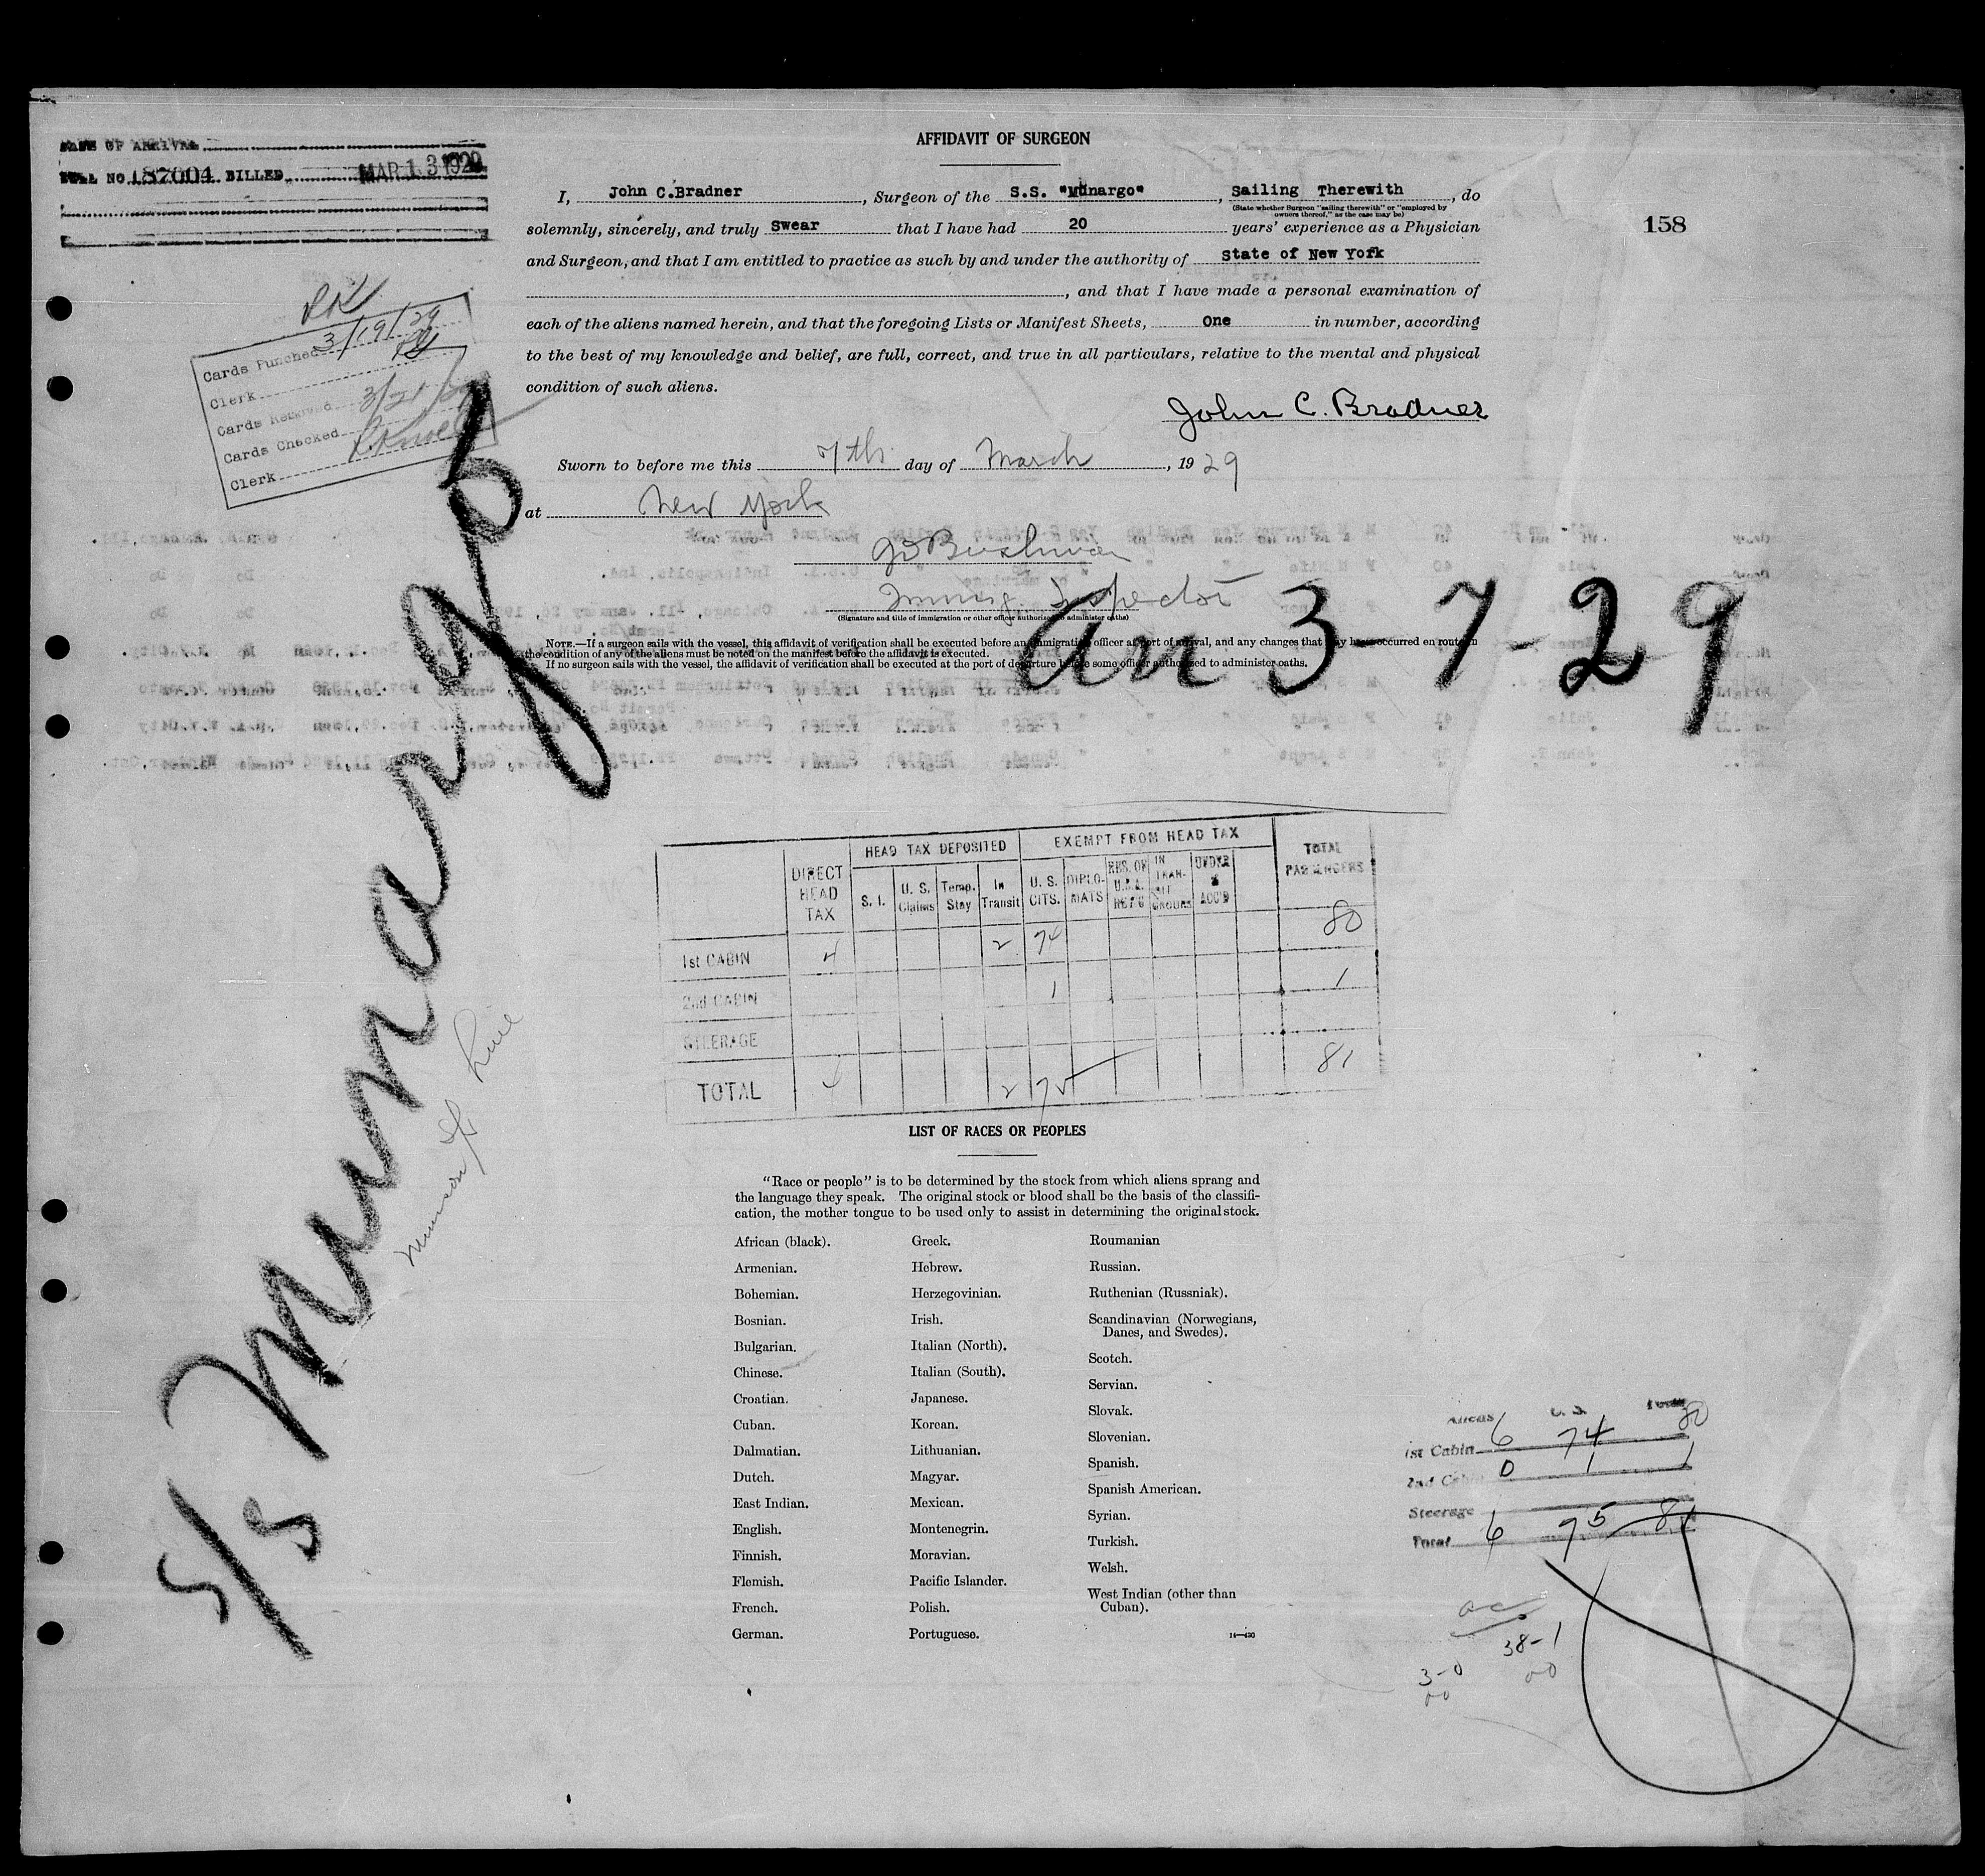 AFFIDAVIT OF SURGEON
DATE OF ARRIVAL
BILL NO. 187004 BILLED MAR 13 1929
158
I, John C.Bradner, Surgeon of the S.S. "Munargo", Sailing Therewith, do
(State whether Surgeon "sailing therewith" or "employed by owners thereof," as the case may be)
solemnly, sincerely, and truly Swear that I have had 20 years' experience as a Physician
and Surgeon, and that I am entitled to practice as such by and under the authority of State of New York
, and that I have made a personal examination of
each of the aliens named herein, and that the foregoing Lists or Manifest Sheets, One in number, according
to the best of my knowledge and belief, are full, correct, and true in all particulars, relative to the mental and physical
condition of such aliens.
John C. Bradner
Sworn to before me this 7th day of March, 1929
at New York
Immig. Inspector
(Signature and title of immigration or other officer authorized to administer oaths)
NOTE.—If a surgeon sails with the vessel, this affidavit of verification shall be executed before an immigration officer at port of arrival, and any changes that may have occurred en route in
the condition of any of the aliens must be noted on the manifest before the affidavit is executed.
If no surgeon sails with the vessel, the affidavit of verification shall be executed at the port of departure before some officer authorized to administer oaths.
Cards Punched 3/19/29
Clerk
Cards Removed 3/21/29
Cards Checked
Clerk
S/S Munargo
Munson S/S Line
an 3-7-29
DIRECT HEAD TAX
HEAD TAX DEPOSITED
EXEMPT FROM HEAD TAX
TOTAL PASSENGERS
S. I.
U. S. Claims
Temp. Stay
In Transit
U. S. CITS.
DIPLOMATS
RES. OF U.S.A. RET'G
IN TRANSIT GROUPS
UNDER ACC'D
1st CABIN 4 2 74 80
2nd CABIN 1 1
STEERAGE
TOTAL 4 2 75 81
LIST OF RACES OR PEOPLES
"Race or people" is to be determined by the stock from which aliens sprang and
the language they speak. The original stock or blood shall be the basis of the classifi-
cation, the mother tongue to be used only to assist in determining the original stock.
African (black).
Armenian.
Bohemian.
Bosnian.
Bulgarian.
Chinese.
Croatian.
Cuban.
Dalmatian.
Dutch.
East Indian.
English.
Finnish.
Flemish.
French.
German.
Greek.
Hebrew.
Herzegovinian.
Irish.
Italian (North).
Italian (South).
Japanese.
Korean.
Lithuanian.
Magyar.
Mexican.
Montenegrin.
Moravian.
Pacific Islander.
Polish.
Portuguese.
Roumanian
Russian.
Ruthenian (Russniak).
Scandinavian (Norwegians,
Danes, and Swedes).
Scotch.
Servian.
Slovak.
Slovenian.
Spanish.
Spanish American.
Syrian.
Turkish.
Welsh.
West Indian (other than
Cuban).
Aliens U. S. Total
1st Cabin 6 74 80
2nd Cabin 0 1 1
Steerage
Total 6 75 81
38-1
3-0
00
00